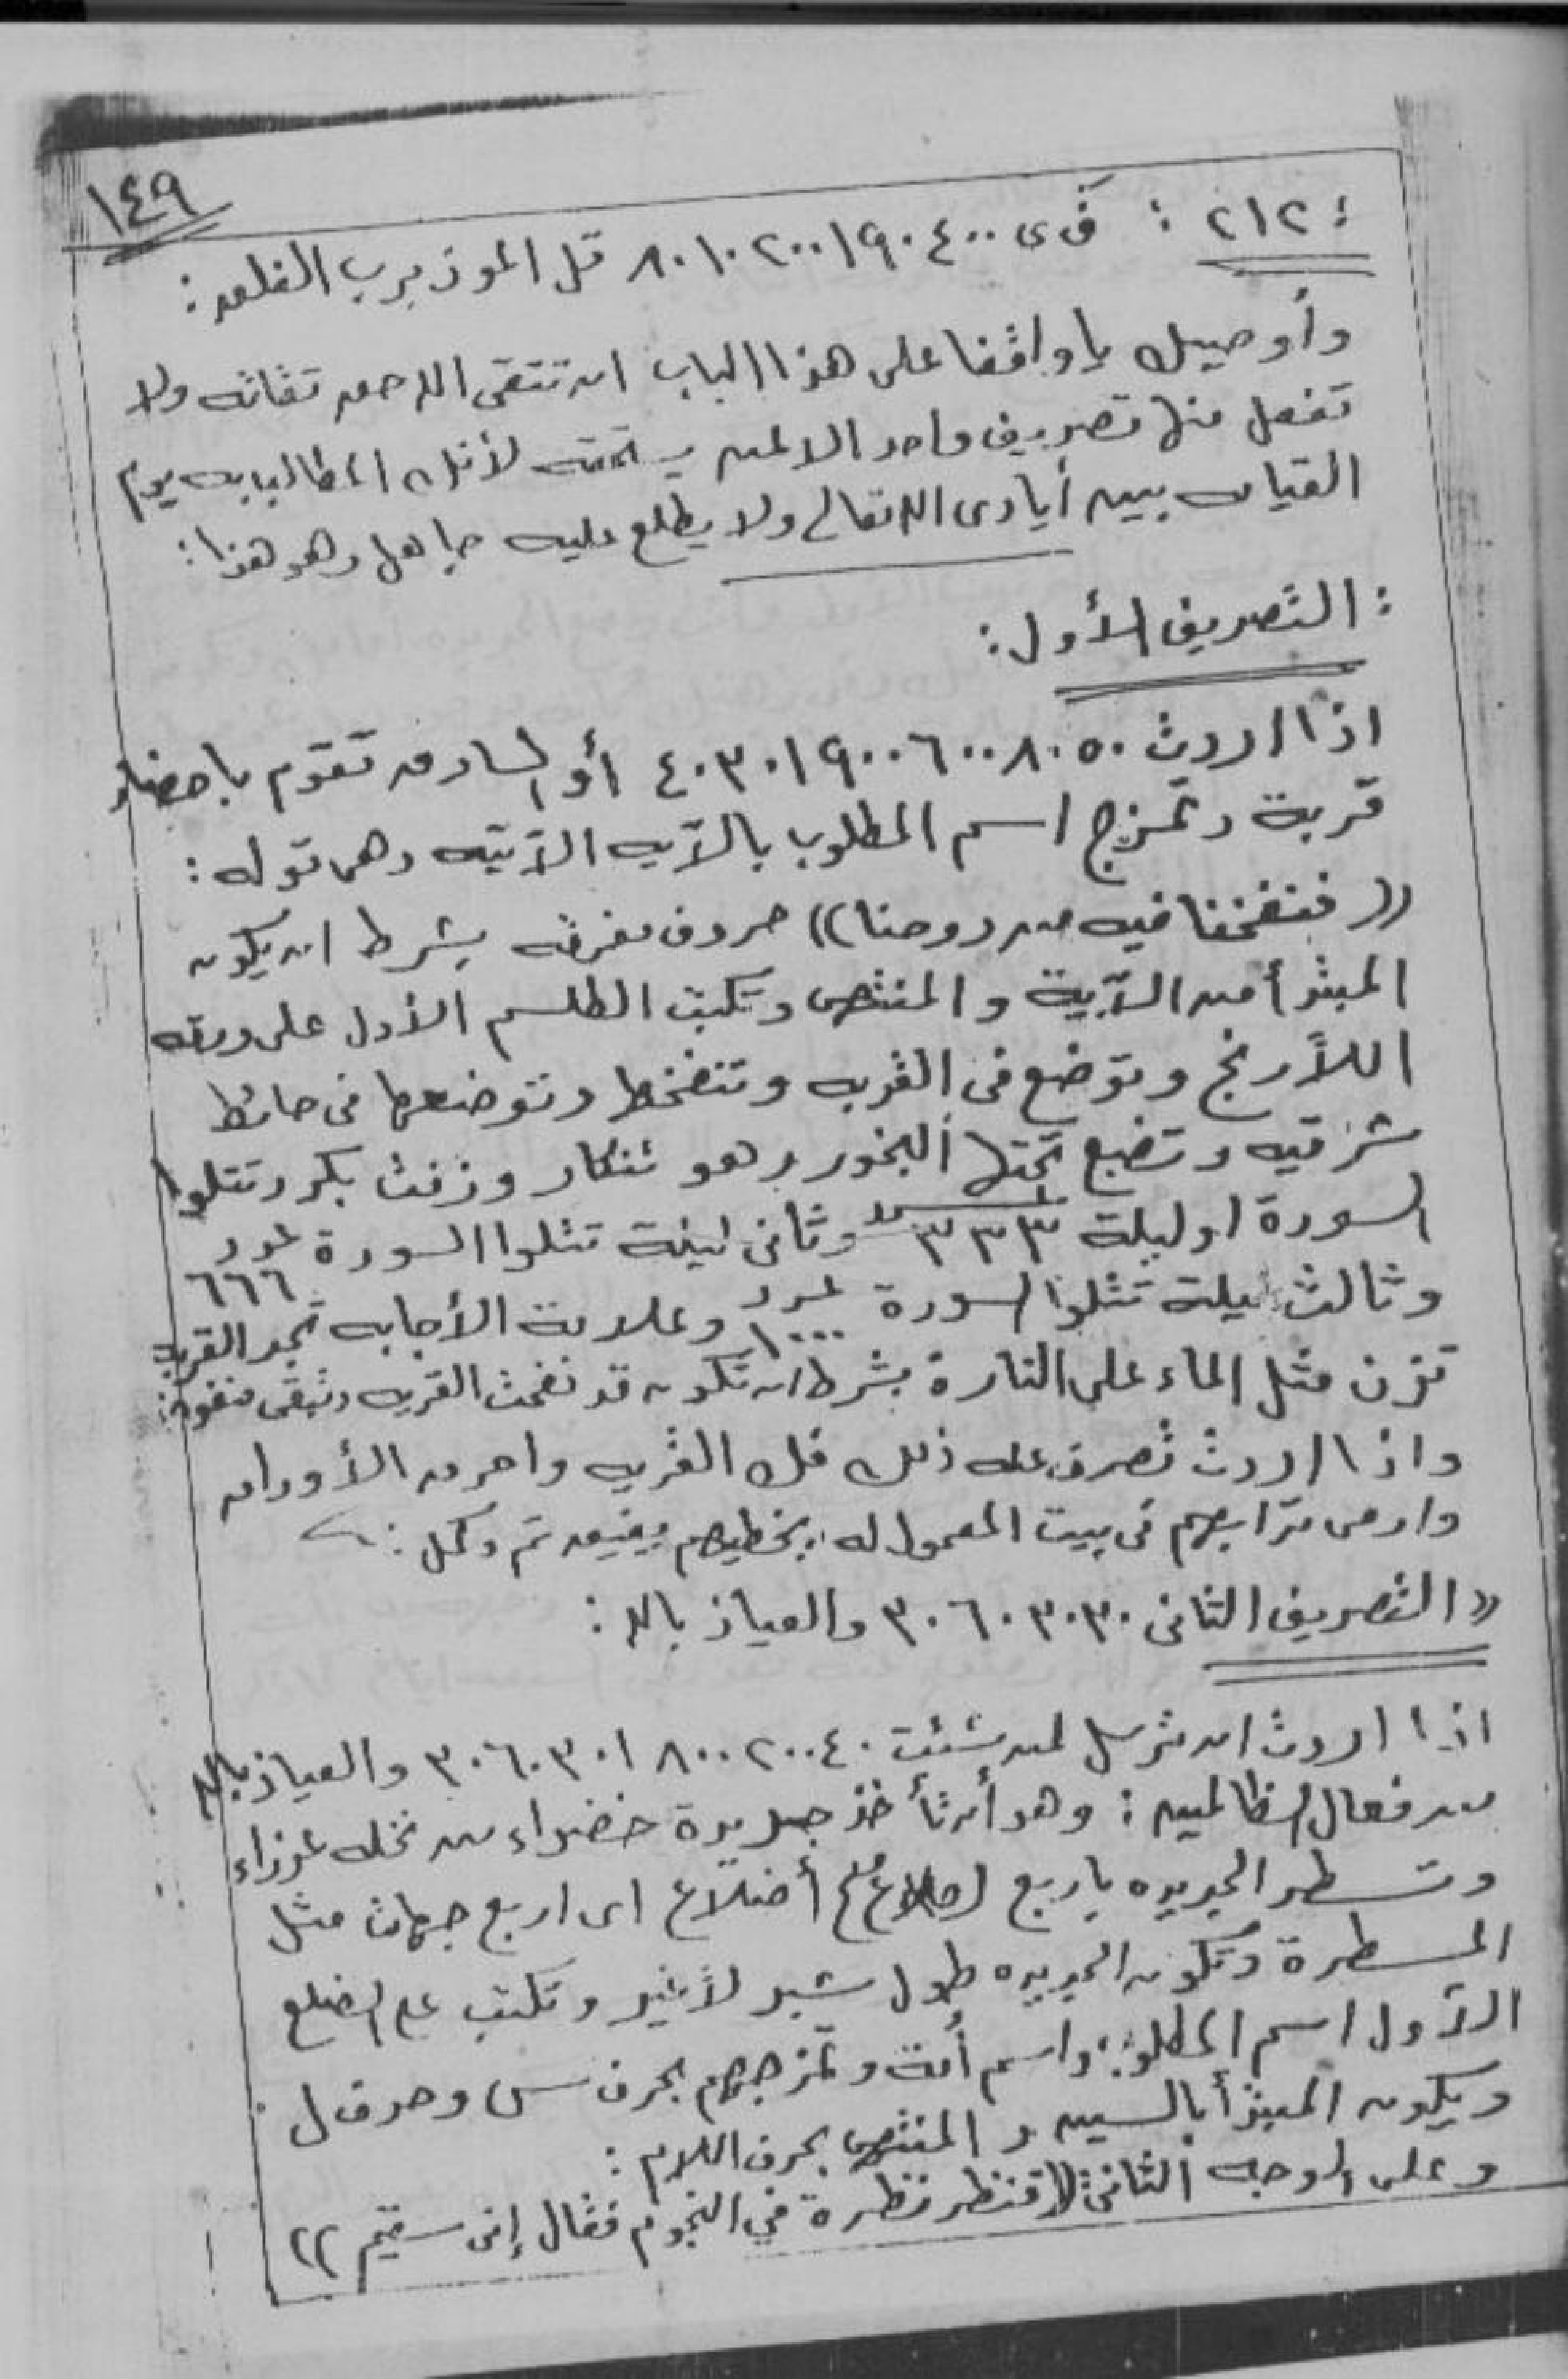 ١٤٩
: ٢١٢ : ف ى ٤٠٠ ٩٠ ١ ٢٠٠ ١٠ ٨٠ قل اعوذ برب الفلق :
وأوصيك يا واقفا على هذا الباب ان تتقى الله حق تقاته ولا
تفعل منها تصريف واحد الا لمن يستحقه لأنك المطالب به يوم
القيامه بين أيادى الله تعالى ولا يطلع عليه جاهل وهو هذا :
: التصريف الأول :
اذا اردت ٥٠ ٨٠ ٦٠٠ ٩٠٠ ١ ٣٠ ٤٠ أو تقوم باحضار
قربة وتمزج اسم المطلوب بالآيه الآتيه وهى قوله :
(( فنفخنا فيه من روحنا )) حروف مفرقه بشرط ان يكون
المبتدأ من الآية والمنتهى وتكتب الطلسم الأول على ورقه
اللآرنج وتوضع فى القربه وتنفخها وتوضعها فى حائط
شرقيه وتضع تحتها البخور وهو تنكار وزفت بكر وتتلوا
السورة اول ليلة ٣٣٣ وثانى ليلة تتلوا السورة عدد ٦٦٦
وثالث ليلة تتلوا السورة عدد ١٠٠٠ وعلامة الأجابه تجد القربه
تزن مثل الماء على النارة بشرط ان تكون قد نفخت القربه وتبقى منفوخه
واذا اردت تصرف عنه ذلك فك القربه واحرق الأوراق
وارمى ترابهم فى بيت المعمول له يخطيهم يفيق تم وكمل :
(( التصريف الثانى ٣٠ ٣٠ ٦٠ ٣٠ والعياذ بالله :
اذا اردت ان ترسل لمن شئت ٤٠ ٢٠٠ ٨٠٠ ١ ٣٠ ٦٠ ٣٠ والعياذ بالله
من فعال الظالمين : وهو أن تأخذ جريدة خضراء من نخله عزراء
وتسطر الجريده باربع أضلاع اى اربع جهات مثل
المسطرة وتكون الجريده طول شبر لاغير وتكتب على الضلع
الآول اسم المطلوب واسم أمة وتمزجهم بحرف س وحرف ل
ويكون المبتدأ بالسين والمنتهى بحرف اللام :
وعلى الوجه الثانى (( فنظر نظرة في النجوم فقال إنى سقيم ))